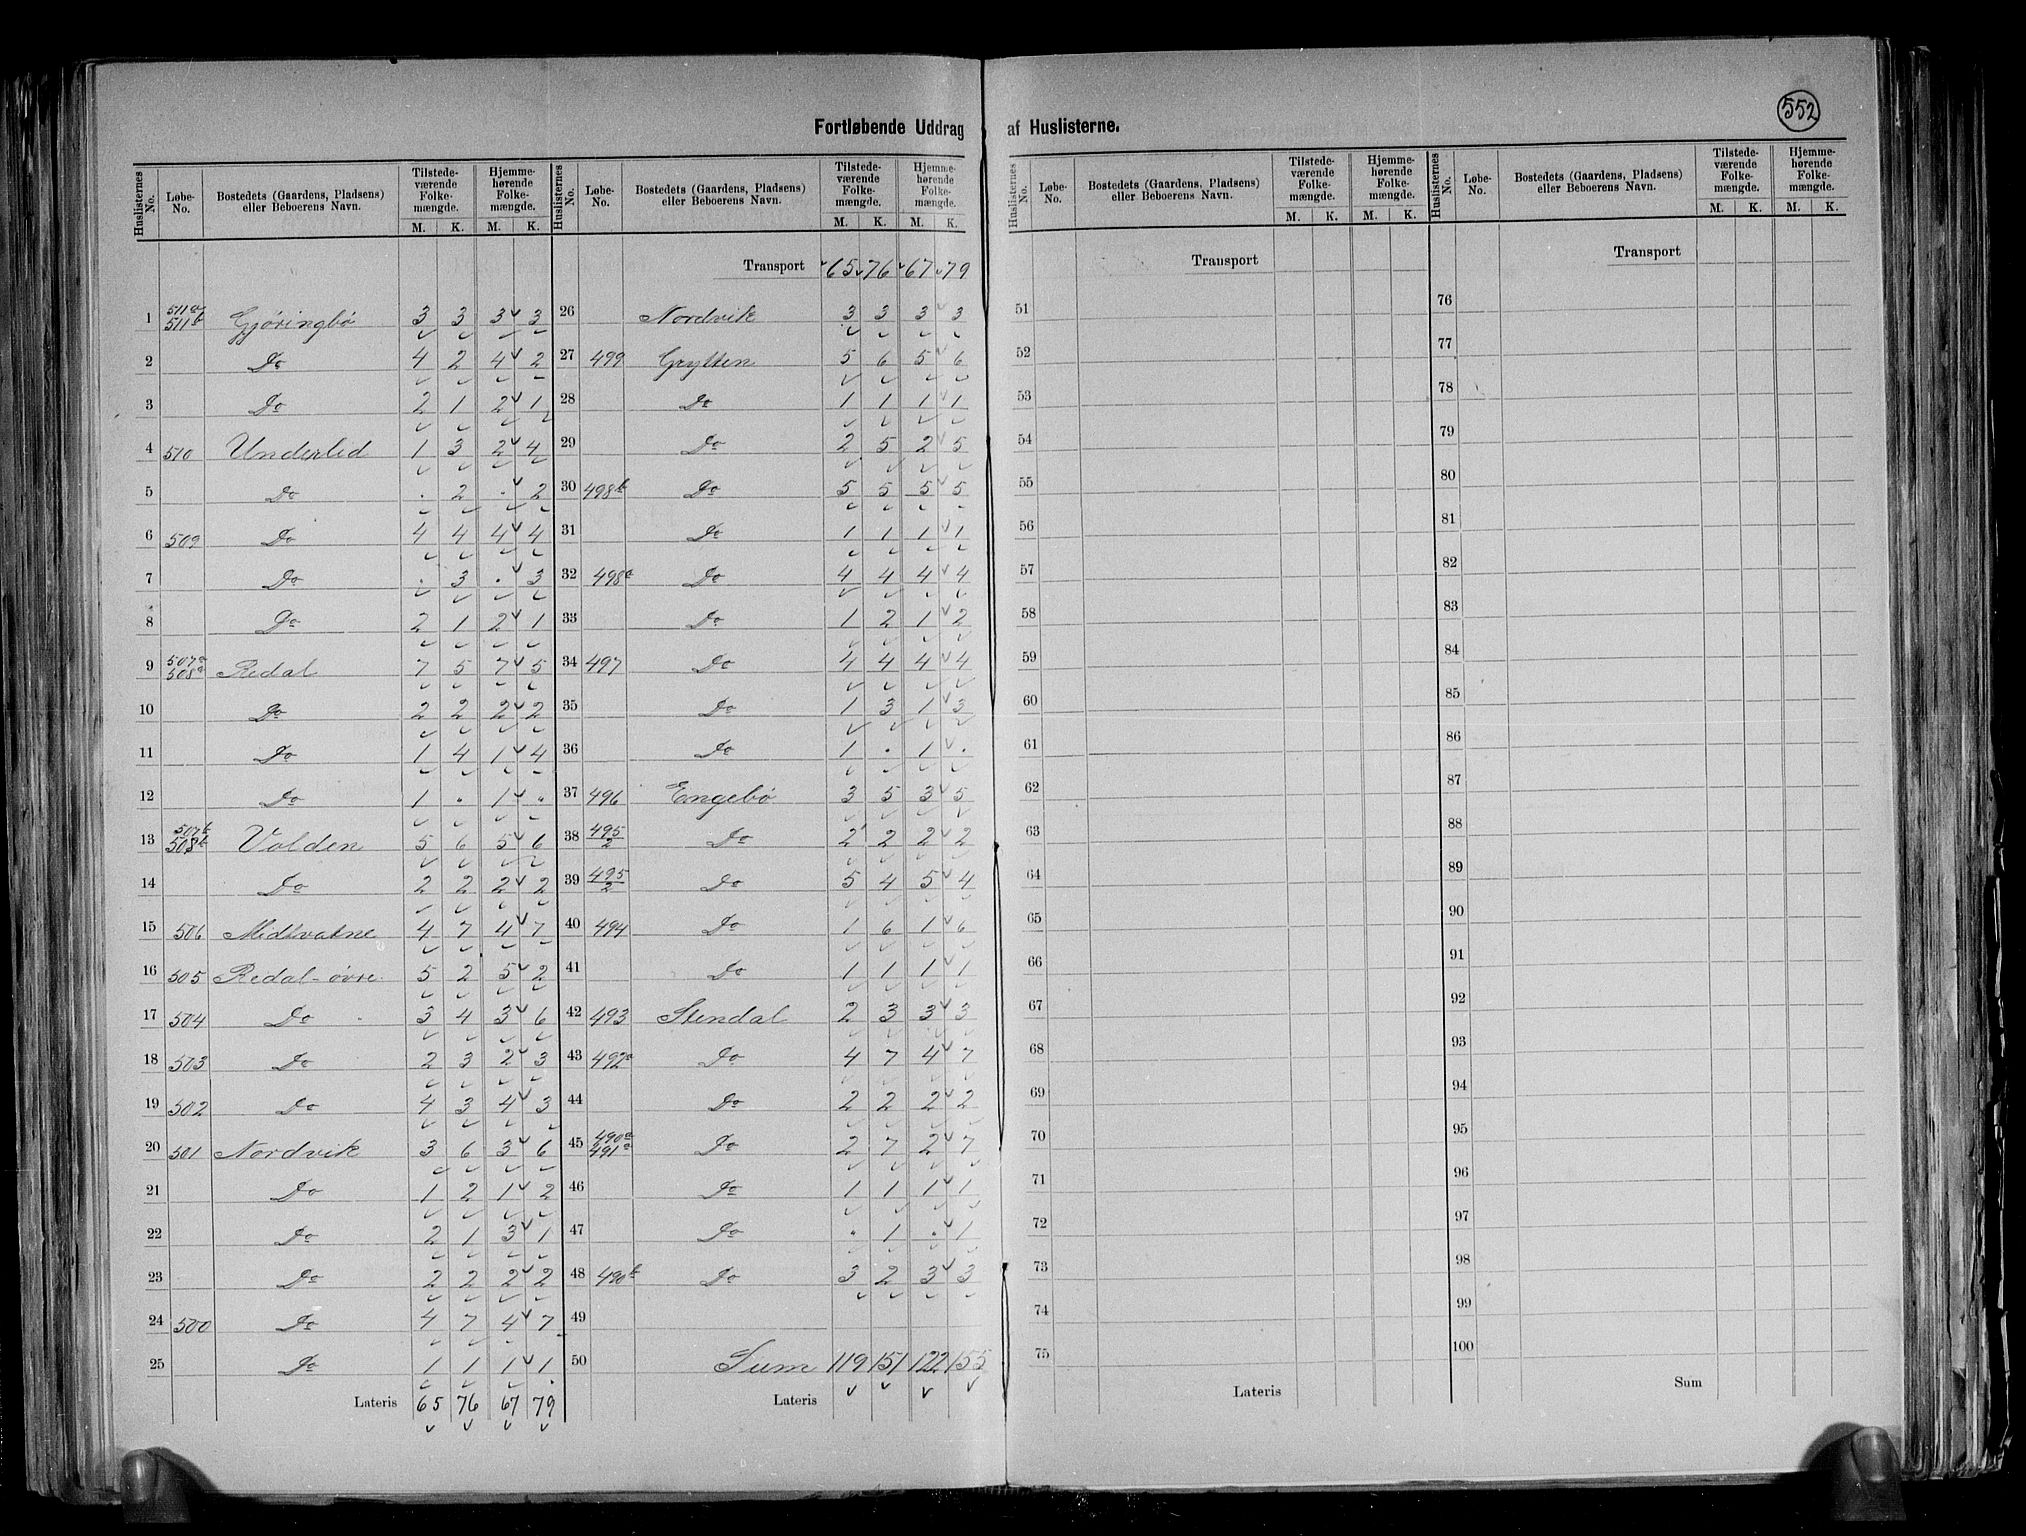 552
Fortløbende Uddrag af Huslisterne.
Huslisternes No. | Løbe-No. | Bostedets (Gaardens, Pladsens) eller Beboerens Navn. | Tilstedeværende Folkemængde. M. K. | Hjemmehørende Folkemængde. M. K.
1 511a 511b Gjöringbö 3 3 3 3
2 Do 4 2 4 2
3 Do 2 1 2 1
4 510 Underlid 1 3 2 4
5 Do . 2 . 2
6 509 Do 4 4 4 4
7 Do . 3 . 3
8 Do 2 1 2 1
9 507a 508a Redal 7 5 7 5
10 Do 2 2 2 2
11 Do 1 4 1 4
12 Do 1 . 1 .
13 507b 508b Volden 5 6 5 6
14 Do 2 2 2 2
15 506 Midtvatne 4 7 4 7
16 505 Redal-övre 5 2 5 2
17 504 Do 3 4 3 6
18 503 Do 2 3 2 3
19 502 Do 4 3 4 3
20 501 Nordvik 3 6 3 6
21 Do 1 2 1 2
22 Do 2 1 3 1
23 Do 2 2 2 2
24 500 Do 4 7 4 7
25 Do 1 1 1 1
Lateris 65 76 67 79
Huslisternes No. | Løbe-No. | Bostedets (Gaardens, Pladsens) eller Beboerens Navn. | Tilstedeværende Folkemængde. M. K. | Hjemmehørende Folkemængde. M. K.
Transport 65 76 67 79
26 Nordvik 3 3 3 3
27 499 Grytten 5 6 5 6
28 Do 1 1 1 1
29 Do 2 5 2 5
30 498b Do 5 5 5 5
31 Do 1 1 1 1
32 498a Do 4 4 4 4
33 Do 1 2 1 2
34 497 Do 4 4 4 4
35 Do 1 3 1 3
36 Do 1 . 1 .
37 496 Engebö 3 5 3 5
38 495/2 Do 2 2 2 2
39 495/2 Do 5 4 5 4
40 494 Do 1 6 1 6
41 Do 1 1 1 1
42 493 Stendal 2 3 3 3
43 492a Do 4 7 4 7
44 Do 2 2 2 2
45 490a 491a Do 2 7 2 7
46 Do 1 1 1 1
47 Do . 1 . 1
48 490b Do 3 2 3 3
49
50 Sum 119 151 122 155
Lateris
Huslisternes No. | Løbe-No. | Bostedets (Gaardens, Pladsens) eller Beboerens Navn. | Tilstedeværende Folkemængde. M. K. | Hjemmehørende Folkemængde. M. K.
Transport
51
52
53
54
55
56
57
58
59
60
61
62
63
64
65
66
67
68
69
70
71
72
73
74
75
Lateris
Huslisternes No. | Løbe-No. | Bostedets (Gaardens, Pladsens) eller Beboerens Navn. | Tilstedeværende Folkemængde. M. K. | Hjemmehørende Folkemængde. M. K.
Transport
76
77
78
79
80
81
82
83
84
85
86
87
88
89
90
91
92
93
94
95
96
97
98
99
100
Sum